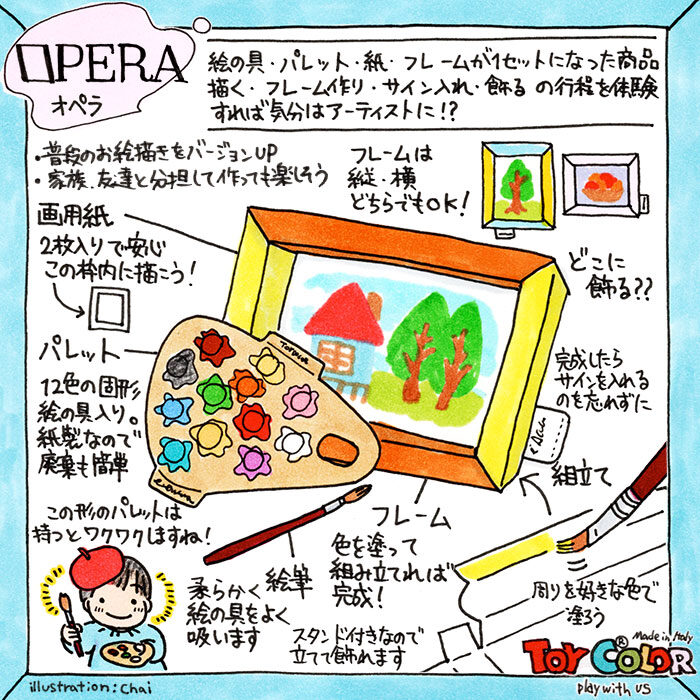 OPERA
オペラ
絵の具・パレット・紙・フレームが1セットになった商品
描く・フレーム作り・サイン入れ・飾る の行程を体験
すれば気分はアーティストに!?
・普段のお絵描きをバージョンUP
・家族、友達と分担して作っても楽しそう
フレームは
縦・横
どちらでもOK!
画用紙
2枚入りで安心
この枠内に描こう!
どこに
飾る??
パレット
12色の固形
絵の具入り。
紙製なので
廃棄も簡単
完成したら
サインを入れる
のを忘れずに
組立て
この形のパレットは
持つとワクワクしますね!
フレーム
色を塗って
組み立てれば
完成!
絵筆
柔らかく
絵の具をよく
吸います
スタンド付きなので
立てて飾れます
周りを好きな色で
塗ろう
Made in Italy
TOY COLOR®
play with us
illustration:Chai